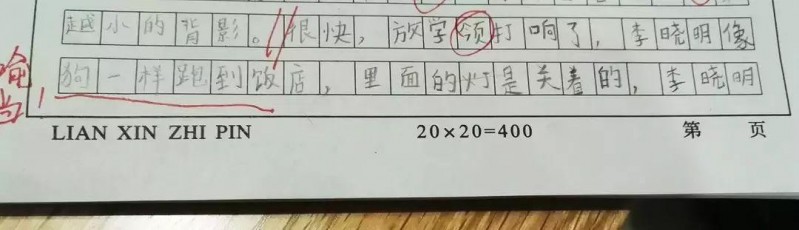 越小的背影。很快，放学领打响了，李晓明像
狗一样跑到饭店，里面的灯是关着的，李晓明
LIAN XIN ZHI PIN 20×20=400 第 页